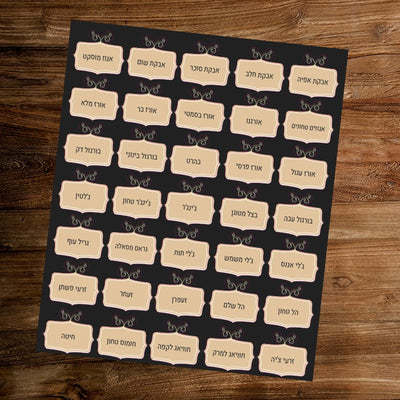 אבקת אפיה
אבקת חלב
אבקת סוכר
אבקת שום
אגוז מוסקט
אגוזים טחונים
אורגנו
אורז בסמטי
אורז בר
אורז מלא
אורז עגול
אורז פרסי
בהרט
בורגול בינוני
בורגול דק
בורגול עבה
בצל מטוגן
ג'ינג'ר
ג'ינג'ר טחון
ג'לטין
ג'לי אננס
ג'לי משמש
ג'לי תות
גראם מסאלה
גריל עוף
הל טחון
הל שלם
זעפרן
זעתר
זרעי פשתן
זרעי צ'יה
חוויאג למרק
חוויאג לקפה
חומוס טחון
חיטה